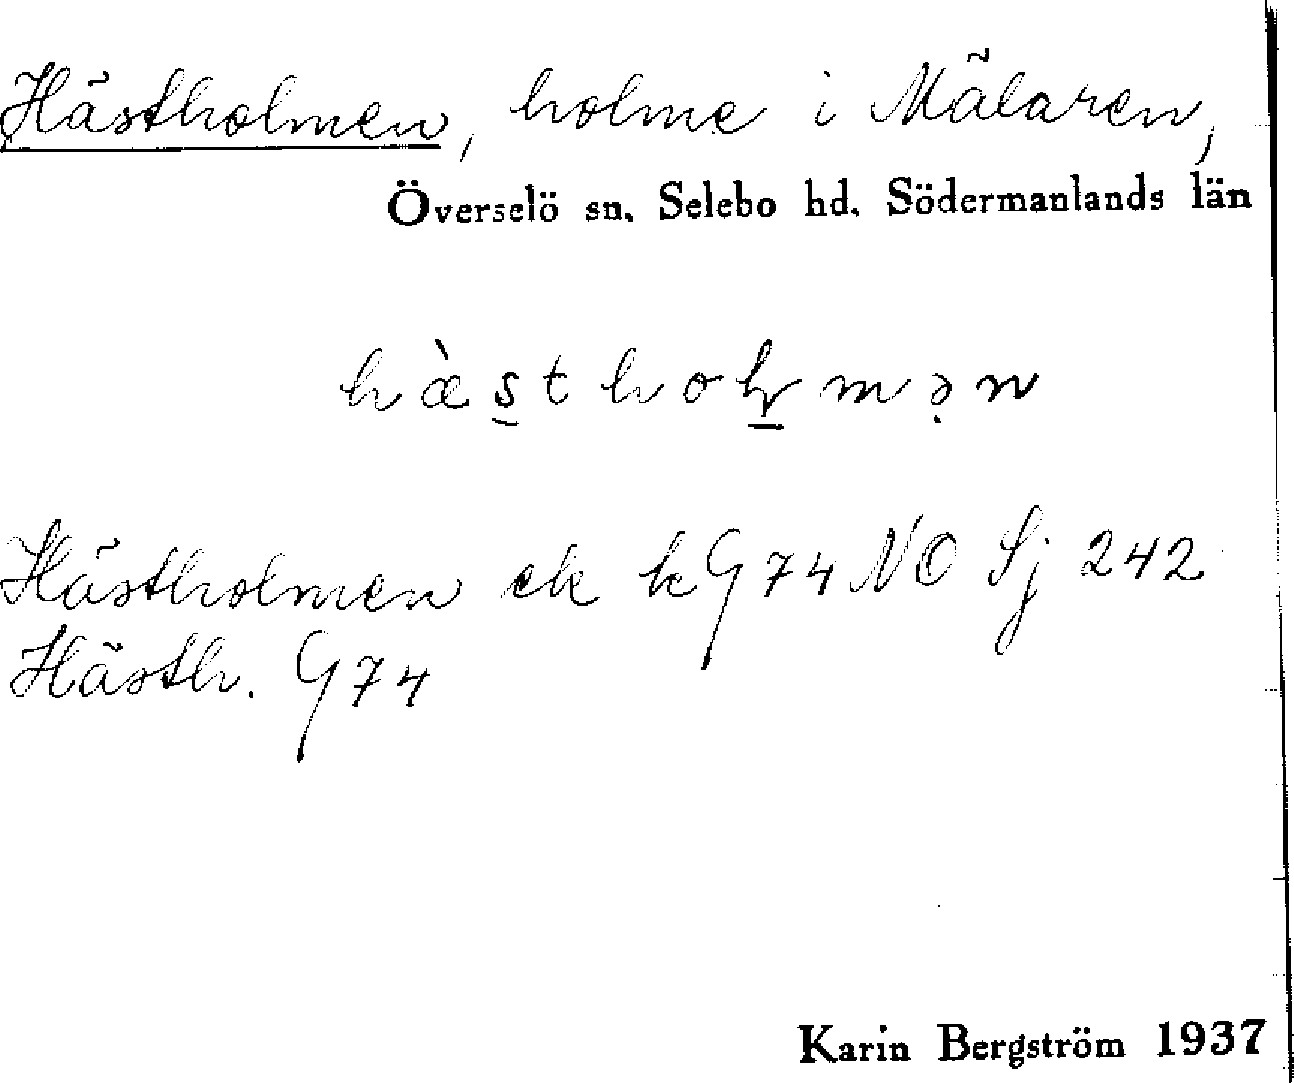 Hästholmen, holme i Mälaren,
Överselö sn. Selebo hd. Södermanlands län
Hästholmen ek kG74 NO Sj 242
Hästh. G74
Karin Bergström 1937